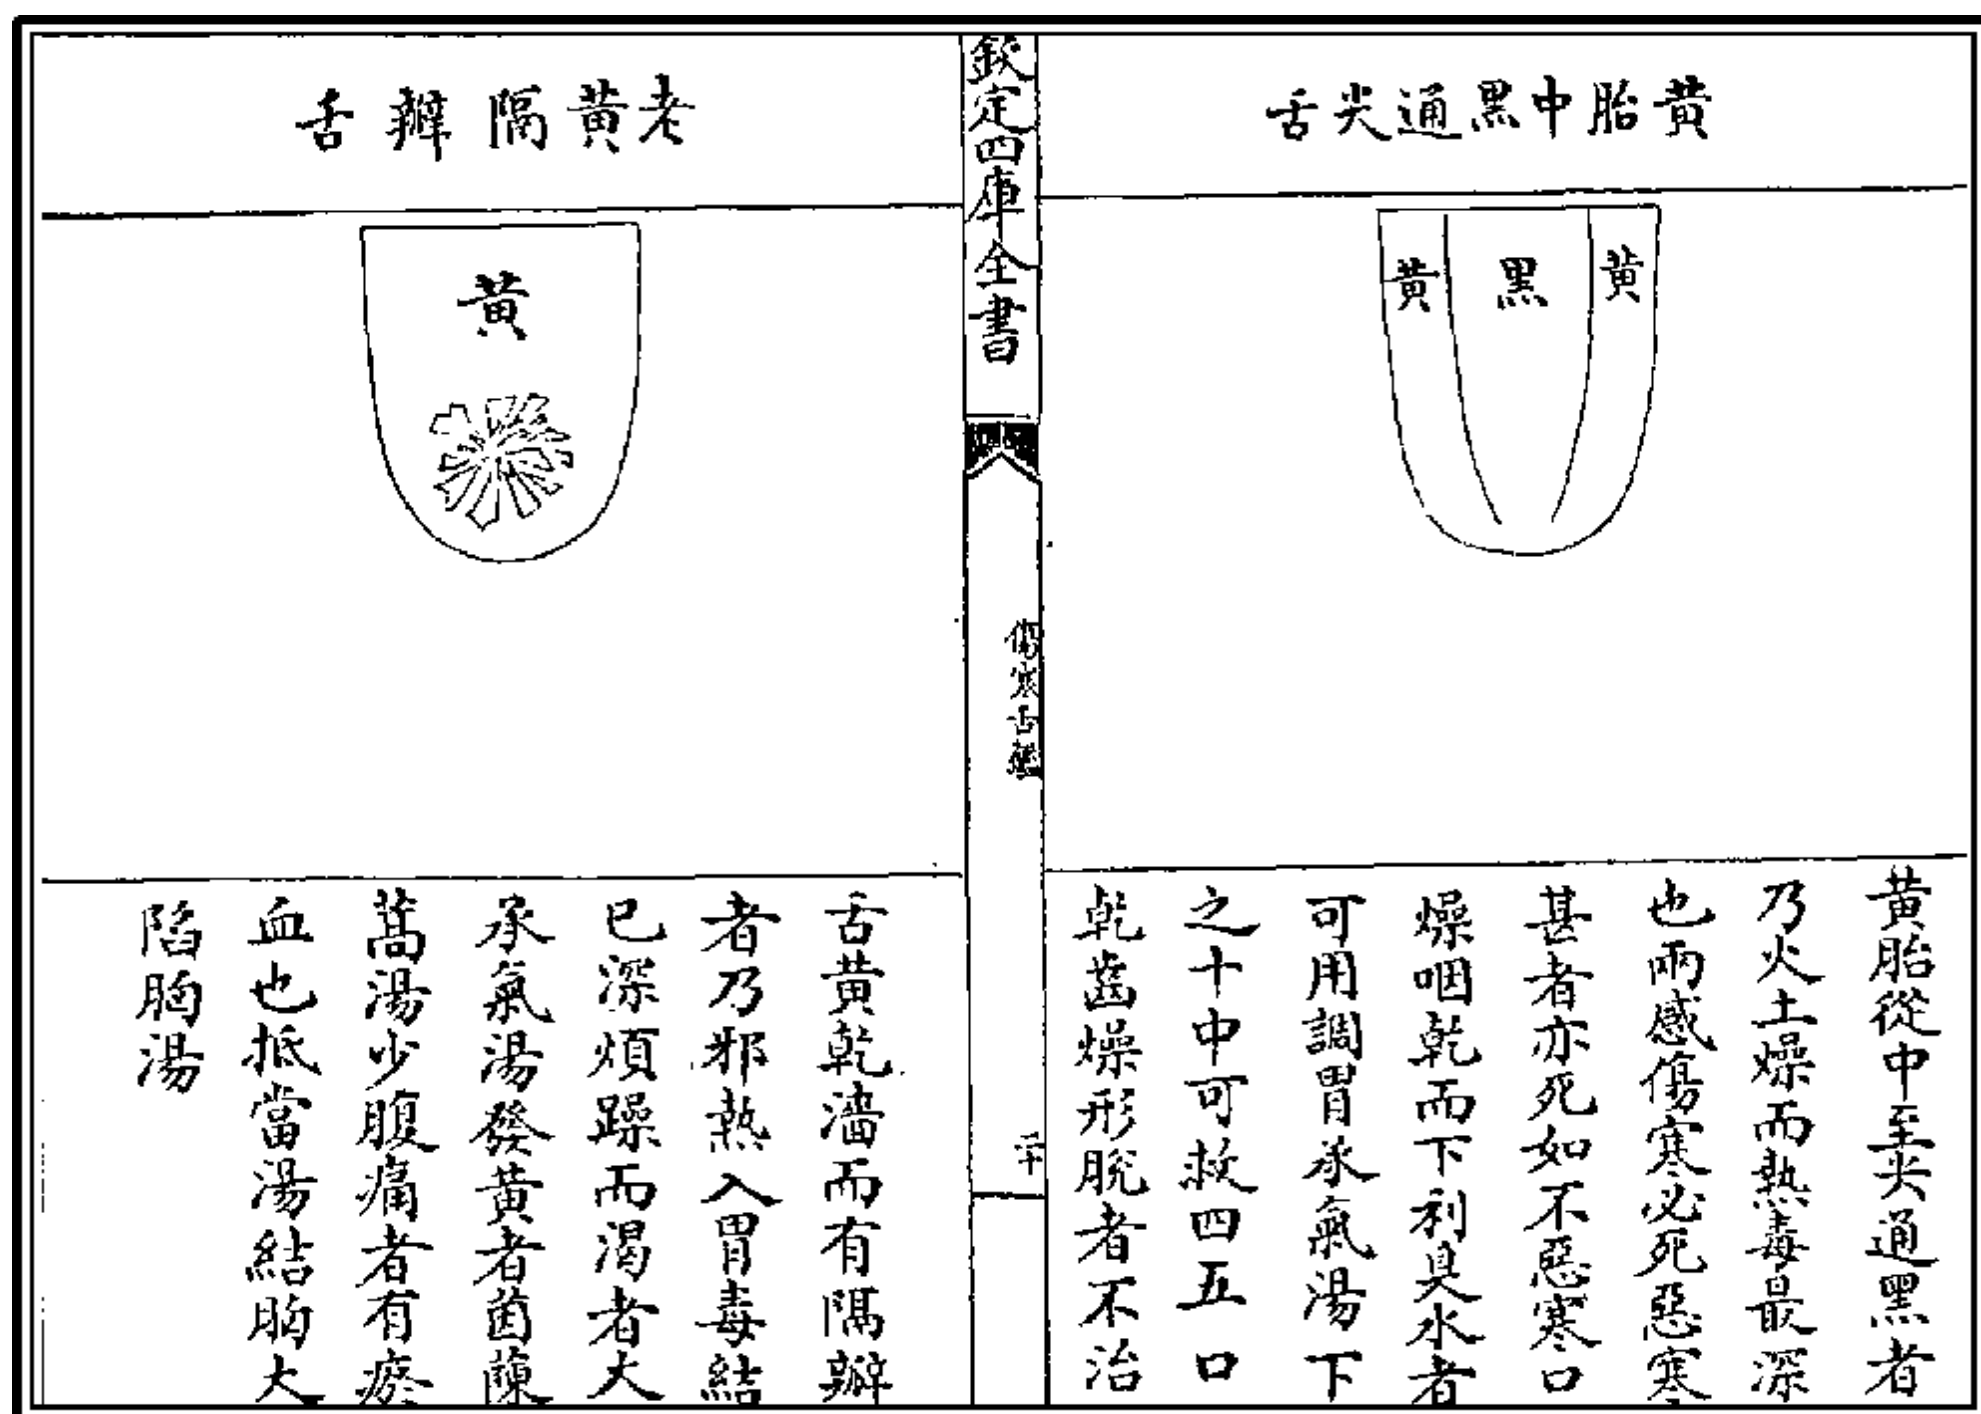 黃胎中黑通尖舌
黃
黑
黃
黃胎從中至尖通黑者
乃火土燥而熱毒最深
也兩感傷寒必死惡寒
甚者亦死如不惡寒口
燥咽乾而下利臭水者
可用調胃承氣湯下
之十中可救四五口
乾齒燥形脫者不治
欽定四庫全書
傷寒舌鑑
二十
老黃隔瓣舌
黃
舌黃乾濇而有隔瓣
者乃邪熱入胃毒結
已深煩躁而渴者大
承氣湯發黃者茵蔯
蒿湯少腹痛者有瘀
血也抵當湯結胸大
陷胸湯